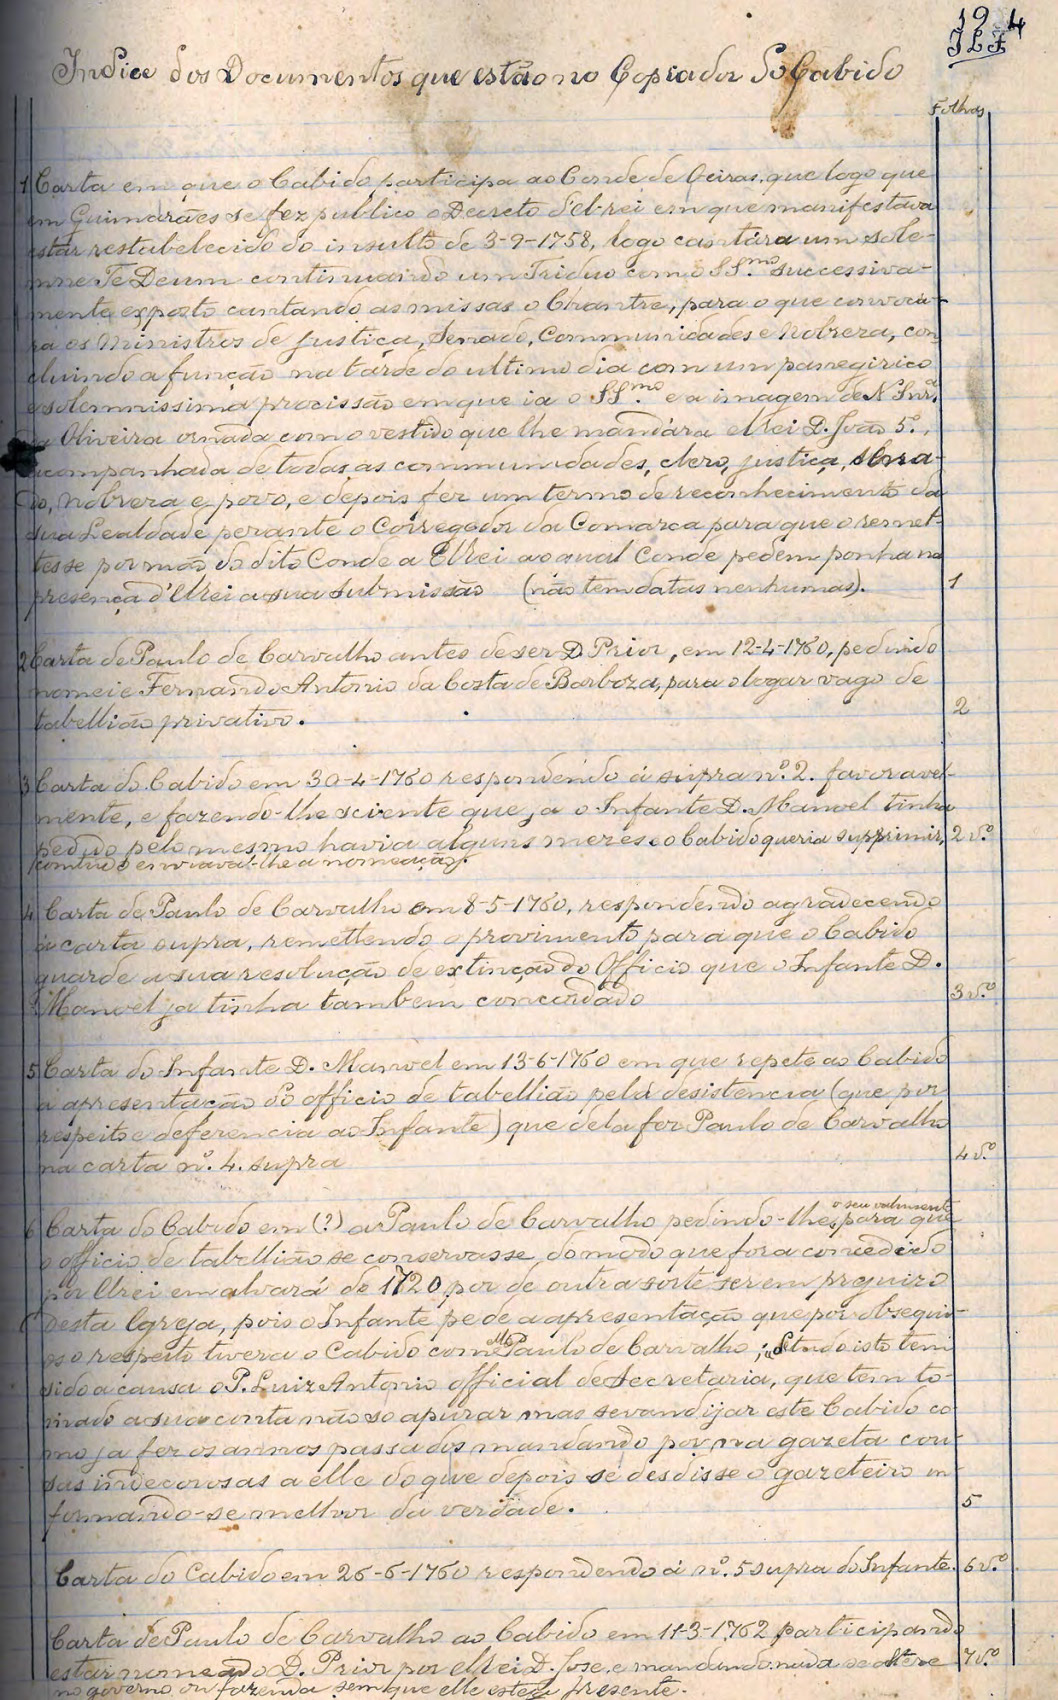 19 4
Indice dos Documentos que estão no Copiador do Cabido
Folhas
1 Carta em que o Cabido participa ao Conde de Oeiras, que logo que
em Guimarães se fez publico o Decreto d'el-rei em que manifestava
estar restabelecido do insulto de 3-9-1758, logo cantára um sole-
mne Te Deum continuando um Triduo com o SS.mo successiva-
mente exposto cantando as missas o Chantre, para o que convocá-
ra os Ministros de Justiça, Senado, Communidades e Nobreza, con
cluindo a função na tarde do ultimo dia com um panegirico
e solemnissima procissão em que ia o SS.mo e a imagem de N Snr.ª
da Oliveira ornada com o vestido que lhe mandára el rei D. João 5º.,
acompanhada de todas as communidades, clero, justiça, Sena-
do, nobreza e povo, e depois fez um termo de reconhecimento da
sua Lealdade perante o Corregedor da Comarca para que o remet-
tesse por mão do dito Conde a El rei ao qual Conde pedem ponha na
presença d'El rei a sua submissão (não tem datas nenhumas). 1
2 Carta de Paulo de Carvalho antes de ser D. Prior, em 12-4-1760, pedindo
nomeie Fernando Antonio da Costa de Barboza, para o logar vago de
tabellião privativo. 2
3 Carta do Cabido em 30-4-1760 respondendo á supra nº. 2. favoravel-
mente, e fazendo-lhe sciente que já o Infante D. Manoel tinha
pedido pelo mesmo havia alguns mezes e o Cabido queria supprimir, 2 v.º
comtudo enviava-lhe a nomeação.
4 Carta de Paulo de Carvalho em 8-5-1760, respondendo agradecendo
á carta supra, remettendo o provimento para que o Cabido
guarde a sua resolução de extincção do Officio que o Infante D.
Manoel ja tinha tambem concordado 3 v.º
5 Carta do Infante D. Manoel em 13-6-1760 em que repete ao Cabido
a apresentação do officio de tabellião pela desistencia (que por
respeito e deferencia ao Infante) que dela fez Paulo de Carvalho
na carta nº. 4. supra 4 v.º
6 Carta do Cabido em (?) a Paulo de Carvalho pedindo-lhe o seu valimento para que
o officio de tabellião se conservasse do modo que fora concedido
por El rei em alvará de 1720 por de outra sorte ser em prejuizo
desta Igreja, pois o Infante pede a apresentação que por obsequi-
oso respeito tivera o Cabido com elle Paulo de Carvalho; tendo isto tem
sido a causa o P. Luiz Antonio official de Secretaria, que tem to-
mado a sua conta não so apurar mas sevandijar este Cabido co
mo ja fez os annos passados mandando por na gazeta cou-
sas indecorosas a elle do que depois se desdisse o gazeteiro in
formando-se melhor da verdade. 5
Carta do Cabido em 26-6-1760 respondendo á nº. 5 supra do Infante. 6 v.º
Carta de Paulo de Carvalho ao Cabido em 11-3-1762, participando
estar nomeado D. Prior por el Rei D. Jose e mandando nada se altere 7 v.º
no governo ou fazenda sem que elle esteja presente.